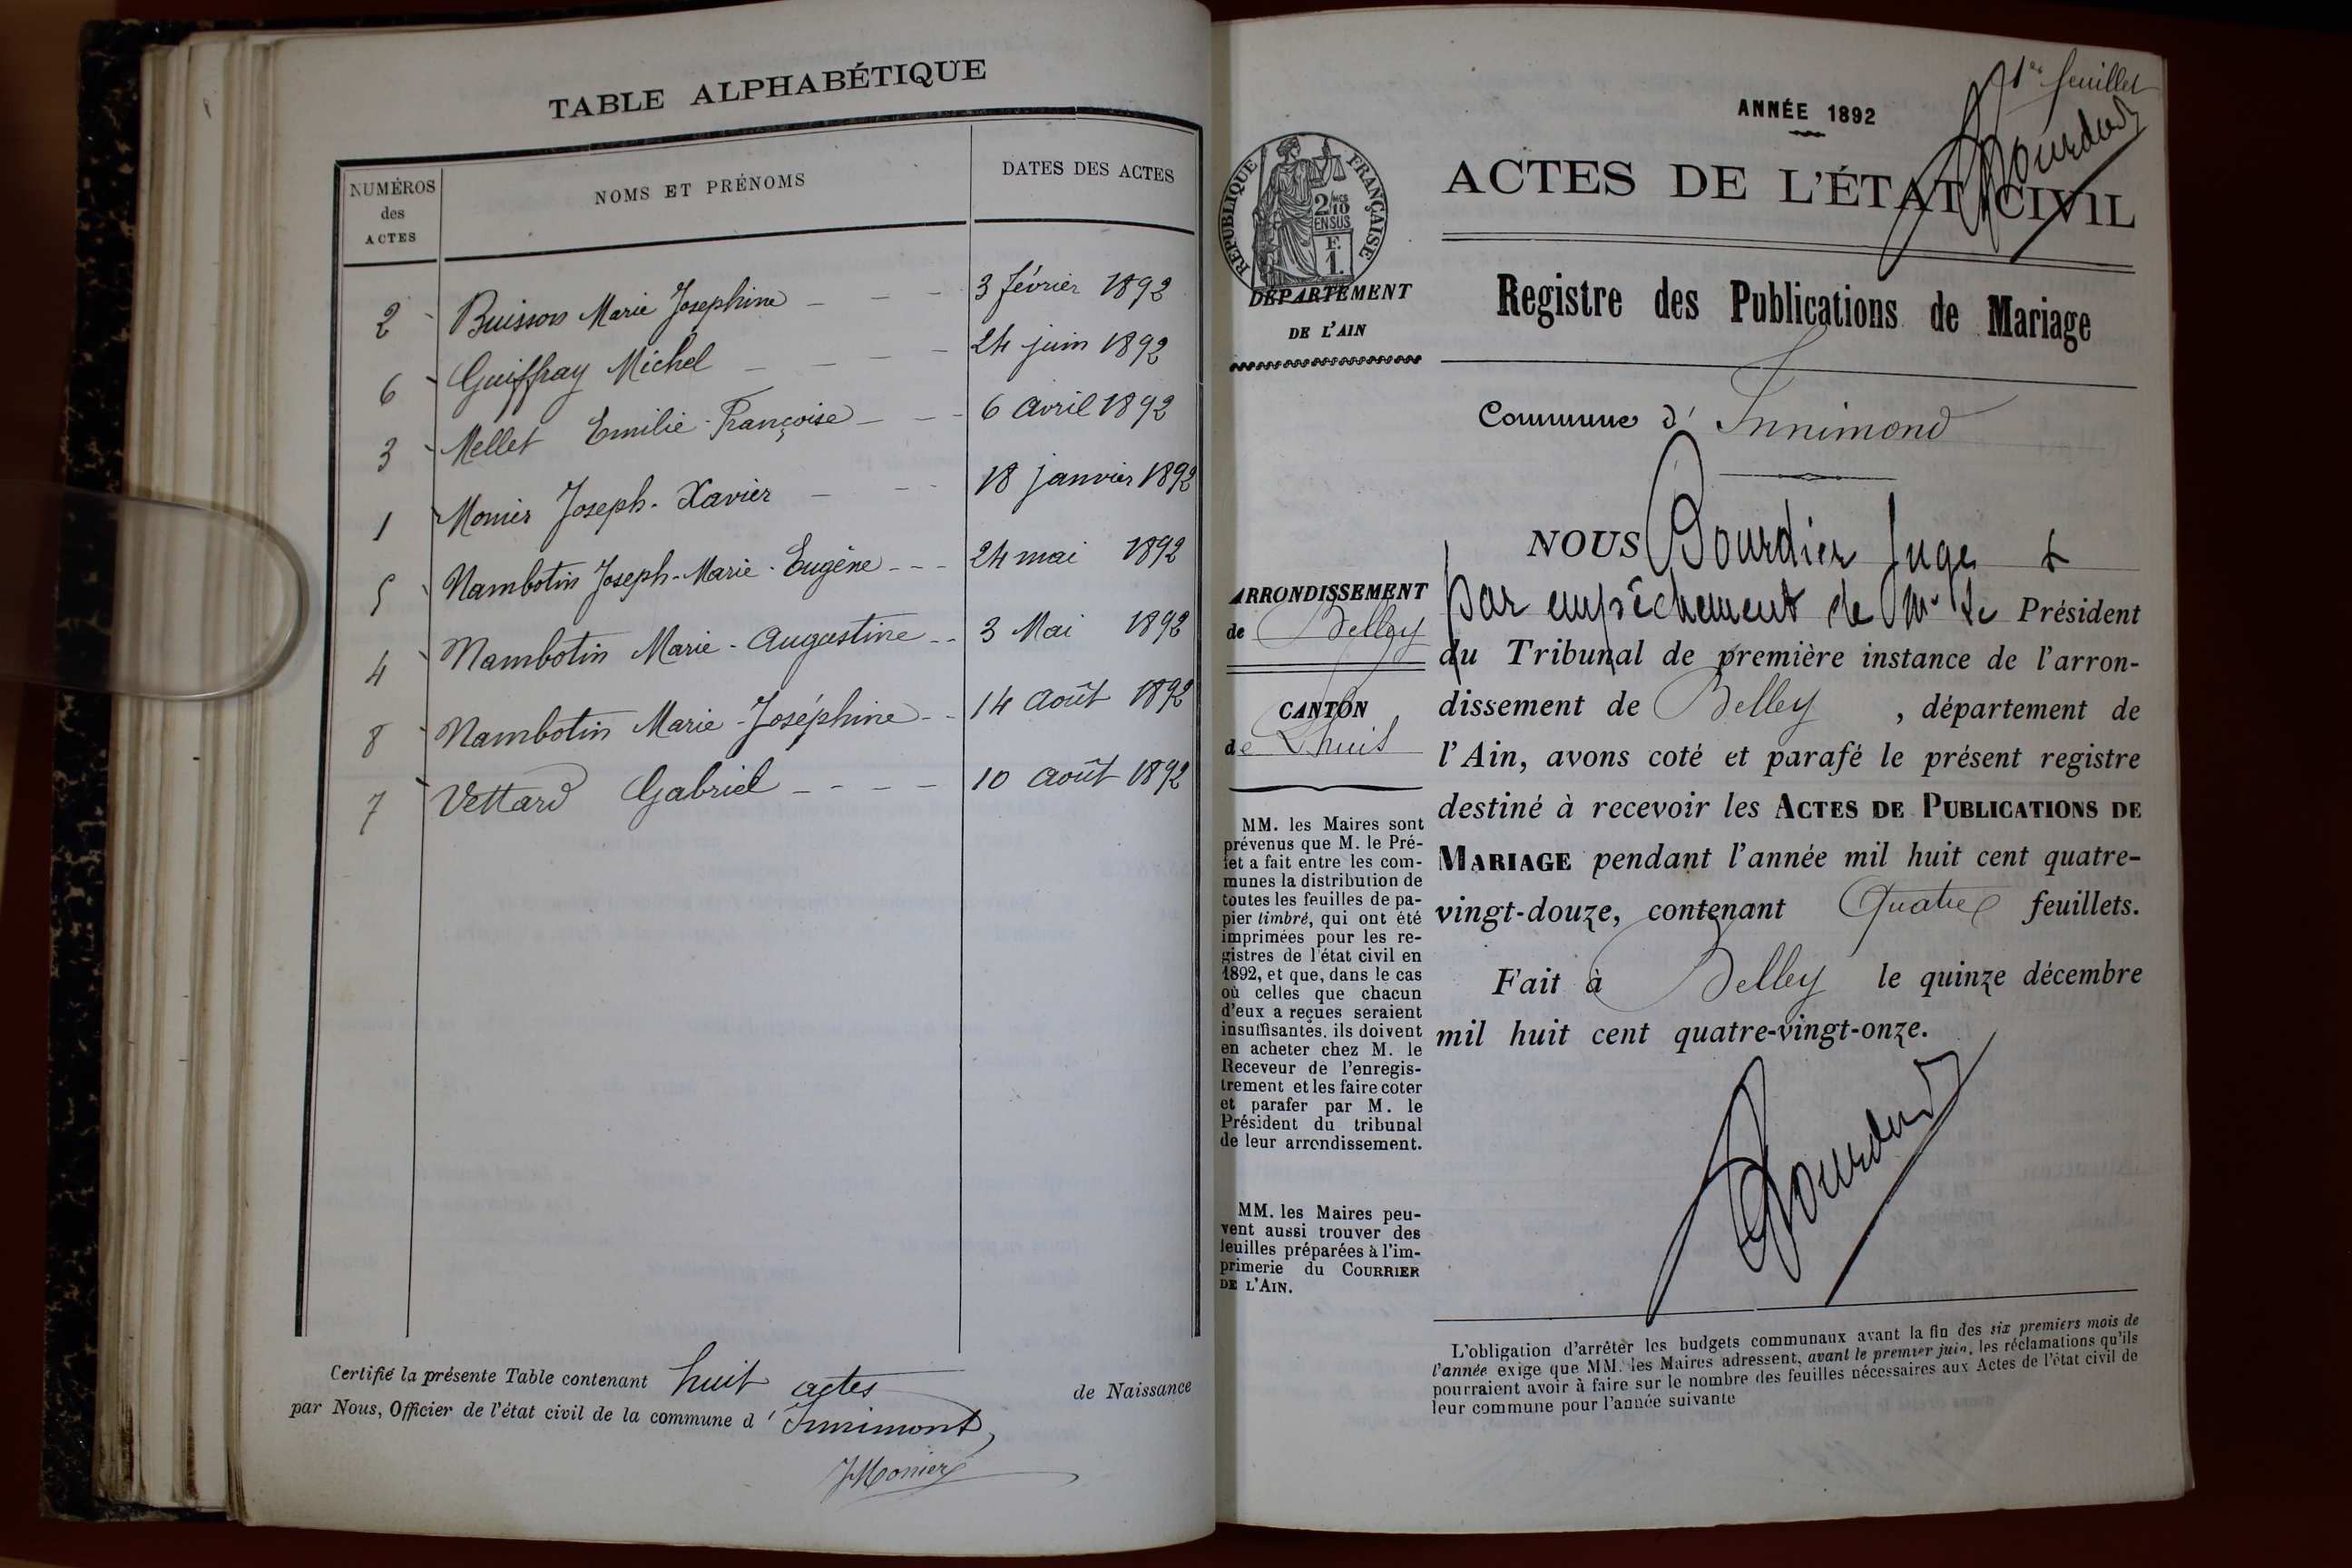 TABLE ALPHABÉTIQUE
NUMÉROS des ACTES NOMS ET PRÉNOMS DATES DES ACTES
2 Buisson Marie Josephine 3 février 1892
6 Guiffray Michel 24 juin 1892
3 Mellet Emilie-Françoise 6 avril 1892
1 Monier Joseph-Xavier 18 janvier 1892
5 Nambotin Joseph-Marie-Eugène 24 mai 1892
4 Nambotin Marie-Augustine 3 Mai 1892
8 Nambotin Marie-Joséphine 14 août 1892
7 Vettard Gabriel 10 août 1892
Certifié la présente Table contenant huit actes de Naissance
par Nous, Officier de l'état civil de la commune d'Innimont,
JMonier
1er feuillet
Bourdier
ANNÉE 1892
ACTES DE L'ÉTAT CIVIL
RÉPUBLIQUE FRANÇAISE
2/10 EN SUS
F.
1.
DÉPARTEMENT
DE L'AIN
Registre des Publications de Mariage
Commune d'Innimond
ARRONDISSEMENT
de Belley
CANTON
de Lhuis
MM. les Maires sont
prévenus que M. le Pré-
fet a fait entre les com-
munes la distribution de
toutes les feuilles de pa-
pier timbré, qui ont été
imprimées pour les re-
gistres de l'état civil en
1892, et que, dans le cas
où celles que chacun
d'eux a reçues seraient
insuffisantes, ils doivent
en acheter chez M. le
Receveur de l'enregis-
trement et les faire coter
et parafer par M. le
Président du tribunal
de leur arrondissement.
MM. les Maires peu-
vent aussi trouver des
feuilles préparées à l'im-
primerie du COURRIER
DE L'AIN.
NOUS Bourdier Juge
par empêchement de Mr le Président
du Tribunal de première instance de l'arron-
dissement de Belley, département de
l'Ain, avons coté et parafé le présent registre
destiné à recevoir les ACTES DE PUBLICATIONS DE
MARIAGE pendant l'année mil huit cent quatre-
vingt-douze, contenant Quatre feuillets.
Fait à Belley le quinze décembre
mil huit cent quatre-vingt-onze.
Bourdier
L'obligation d'arrêter les budgets communaux avant la fin des six premiers mois de
l'année exige que MM. les Maires adressent, avant le premier juin, les réclamations qu'ils
pourraient avoir à faire sur le nombre des feuilles nécessaires aux Actes de l'état civil de
leur commune pour l'année suivante